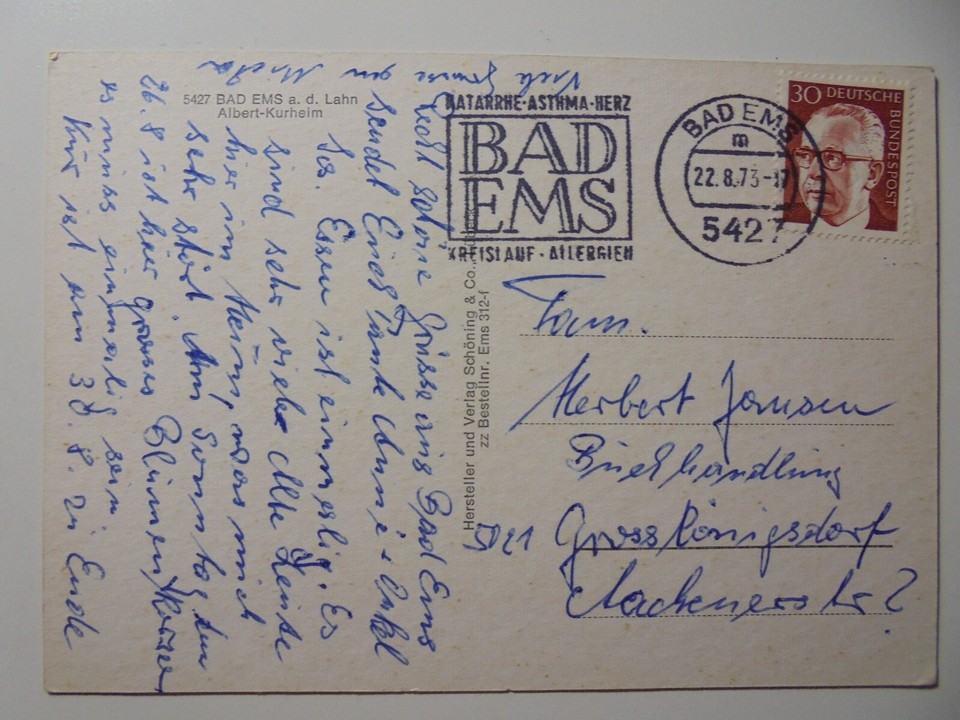 5427 BAD EMS a. d. Lahn
Albert-Kurheim
KATARRHE·ASTHMA·HERZ
BAD
EMS
KREISLAUF·ALLERGIEN
BAD EMS
m
22.8.73-17
5427
30 DEUTSCHE
BUNDESPOST
Hersteller und Verlag Schöning & Co.,
zz Bestellnr. Ems 312-f
Recht schöne Grüsse aus Bad Ems
sendet Euch Tante Änne + Onkel
Jos. Essen ist einmalig. Es
sind sehr viele alte Leute
hier im Heim, was mich
sehr stört. Am Sonntag den
26.8 ist hier grosser Blumenkorso
es muss einmalig sein
Kur ist am 30.8. zu Ende
Viele Grüsse
an
Fam.
Herbert Jansen
Buchhandlung
5021 Grosskönigsdorf
Aachenerstr ?